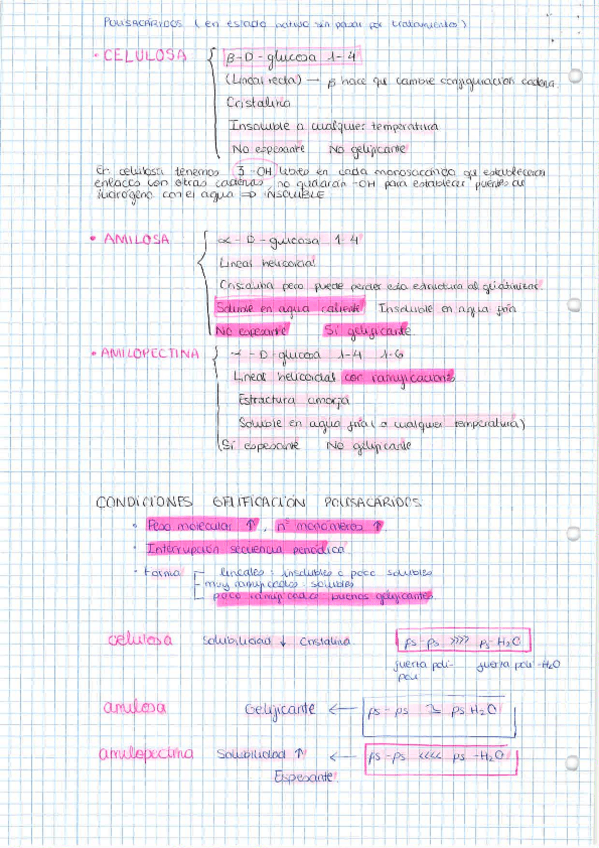 POLISACÁRIDOS (en estado nativo sin pasar por tratamientos)
• CELULOSA
β-D-glucosa 1-4
(Lineal recta) → β hace que cambie configuración cadena
Cristalina
Insoluble a cualquier temperatura
No espesante No gelificante
En celulosa tenemos 3 -OH libres en cada monosacárido que establecerán
enlaces con otras cadenas, no quedarán -OH para establecer puentes de
hidrógeno con el agua ⇒ INSOLUBLE
• AMILOSA
α-D-glucosa 1-4
Lineal helicoidal
Cristalina pero puede perder esta estructura al gelatinizar
Soluble en agua caliente Insoluble en agua fría
No espesante Sí gelificante
• AMILOPECTINA
α-D-glucosa 1-4 1-6
Lineal helicoidal con ramificaciones
Estructura amorfa
Soluble en agua fría (a cualquier temperatura)
Sí espesante No gelificante
CONDICIONES GELIFICACIÓN POLISACÁRIDOS
• Peso molecular ↑, nº monómeros ↑
• Interrupción secuencia periódica
• Forma
- lineales: insolubles o poco solubles
- muy ramificados: solubles
- poco ramificados buenos gelificantes
celulosa solubilidad ↓ Cristalina ps-ps >>>> ps-H₂O
fuerza poli- fuerza poli-H₂O
poli
amilosa Gelificante ← ps-ps ps H₂O
amilopectina Solubilidad ↑ ← ps-ps <<<< ps-H₂O
Espesante